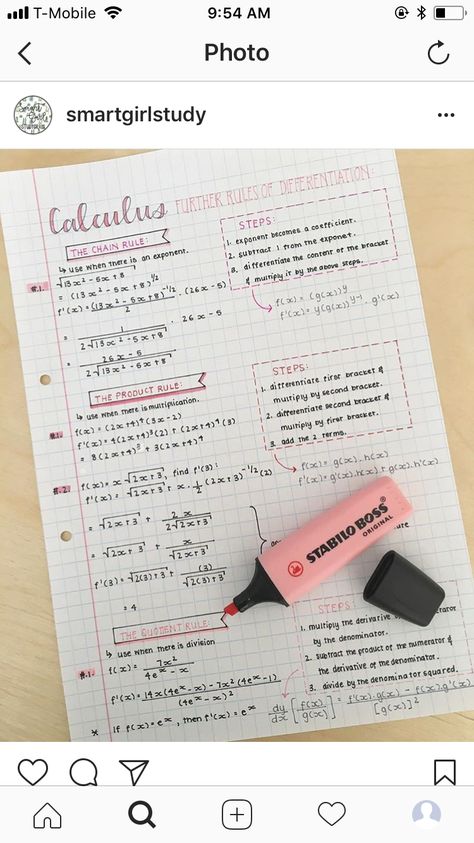 T-Mobile 9:54 AM
Photo
smartgirlstudy
Calculus FURTHER RULES OF DIFFERENTIATION:
THE CHAIN RULE:
↳ use when there is an exponent.
#.1. √13x² - 5x + 8
= (13x² - 5x + 8)^1/2
f'(x) = (13x² - 5x + 8)^-1/2 / 2 . (26x - 5)
= 1 / 2√13x² - 5x + 8 . 26x - 5
= 26x - 5 / 2√13x² - 5x + 8
STEPS:
1. exponent becomes a coefficient.
2. subtract 1 from the exponet.
3. differentiate the content of the bracket
& multiply it by the above steps.
f(x) = (g(x))^y
f'(x) = y(g(x))^y-1 . g'(x)
THE PRODUCT RULE:
↳ use when there is multiplication.
#1. f(x) = (2x+4)⁴(3x-2)
f'(x) = 4(2x+4)³(2) + (2x+4)⁴(3)
= 8(2x+4)³ + 3(2x+4)⁴
STEPS:
1. differentiate first bracket &
multiply by second bracket.
2. differentiate second bracket &
multiply by first bracket.
3. add the 2 terms.
f(x) = g(x).h(x)
f'(x) = g'(x).h(x) + g(x).h'(x)
#.2. f(x) = x√2x+3, find f'(3):
f'(x) = √2x+3 + x . 1/2 (2x+3)^-1/2 (2)
= √2x+3 + 2x / 2√2x+3
= √2x+3 + x / √2x+3
f'(3) = √2(3)+3 + (3) / √2(3)+3
= 4
STABILO BOSS
ORIGINAL
THE QUOTIENT RULE:
↳ use when there is division
#1. f(x) = 7x² / 4eˣ - x
f'(x) = 14x(4eˣ - x) - 7x²(4eˣ - 1) / (4eˣ - x)²
* If f(x) = eˣ, then f'(x) = eˣ
STEPS:
1. multiply the derivative
by the denominator.
2. subtract the product of the numerator &
the derivative of the denominator.
3. divide by the denominator squared.
dy/dx [f(x)/g(x)] = f'(x).g(x) - f(x).g'(x) / [g(x)]²